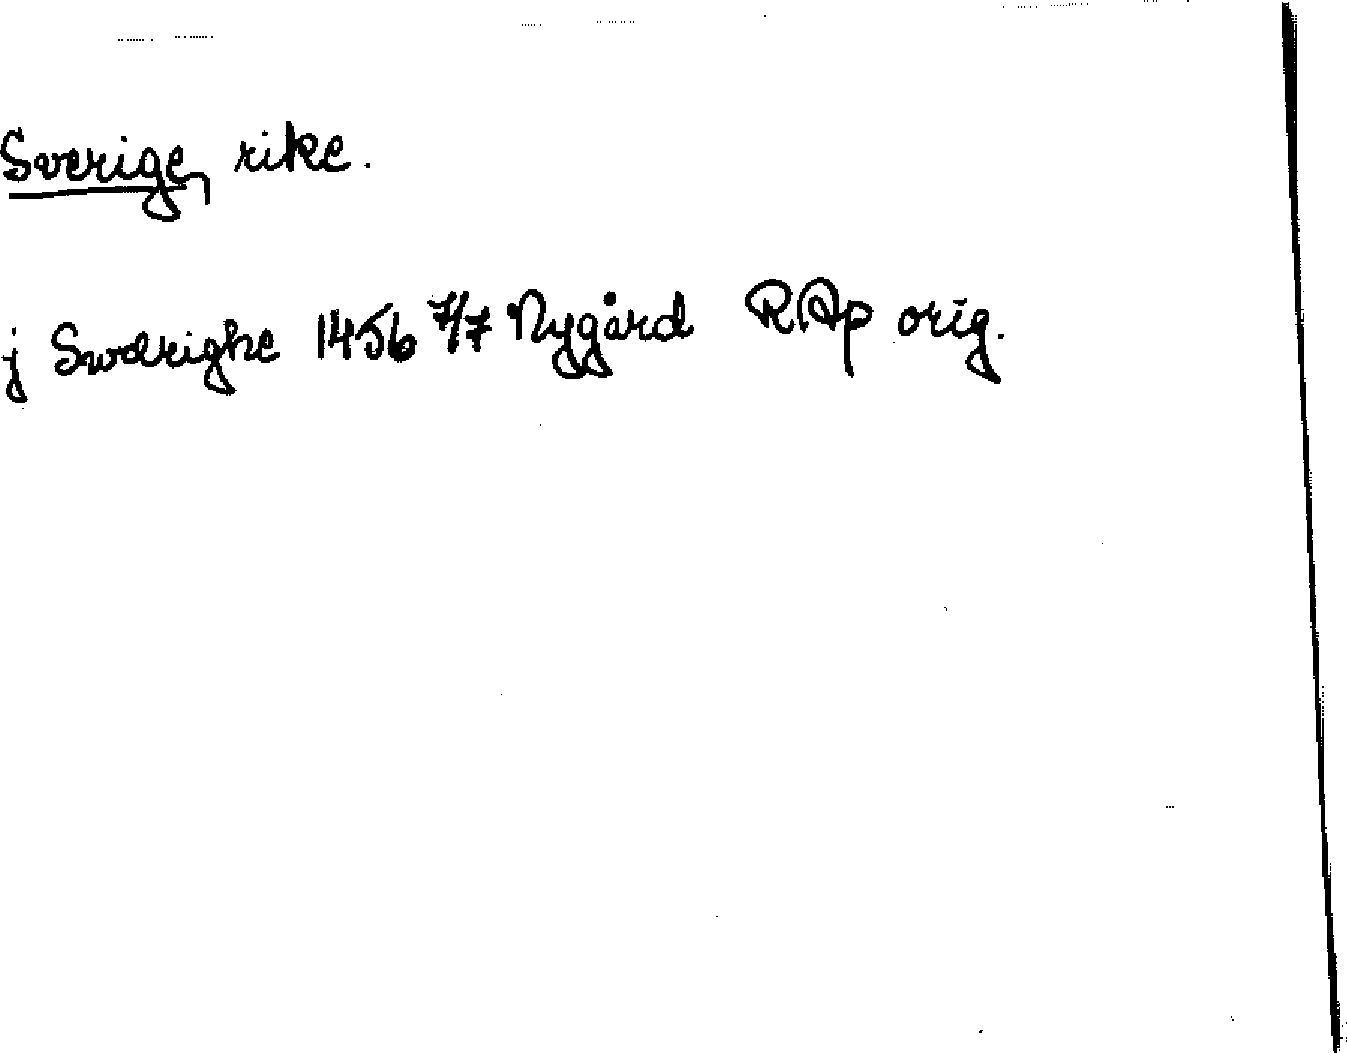 Sverige, rike.
j Swerighe 1456 7/7 Nygård RAp orig.